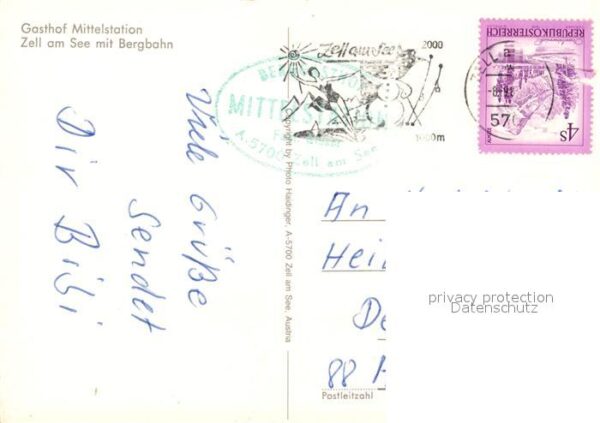 Gasthof Mittelstation
Zell am See mit Bergbahn
Viele Grüße
sendet
Dir Bibi
Copyright by Photo Haidinger, A-5700 Zell am See, Austria
MITTELSTATION
A-5700 Zell am See
Zell am See
2000
1000m
REPUBLIK ÖSTERREICH
4S
570
An
Hei
De
88
Postleitzahl
privacy protection
Datenschutz